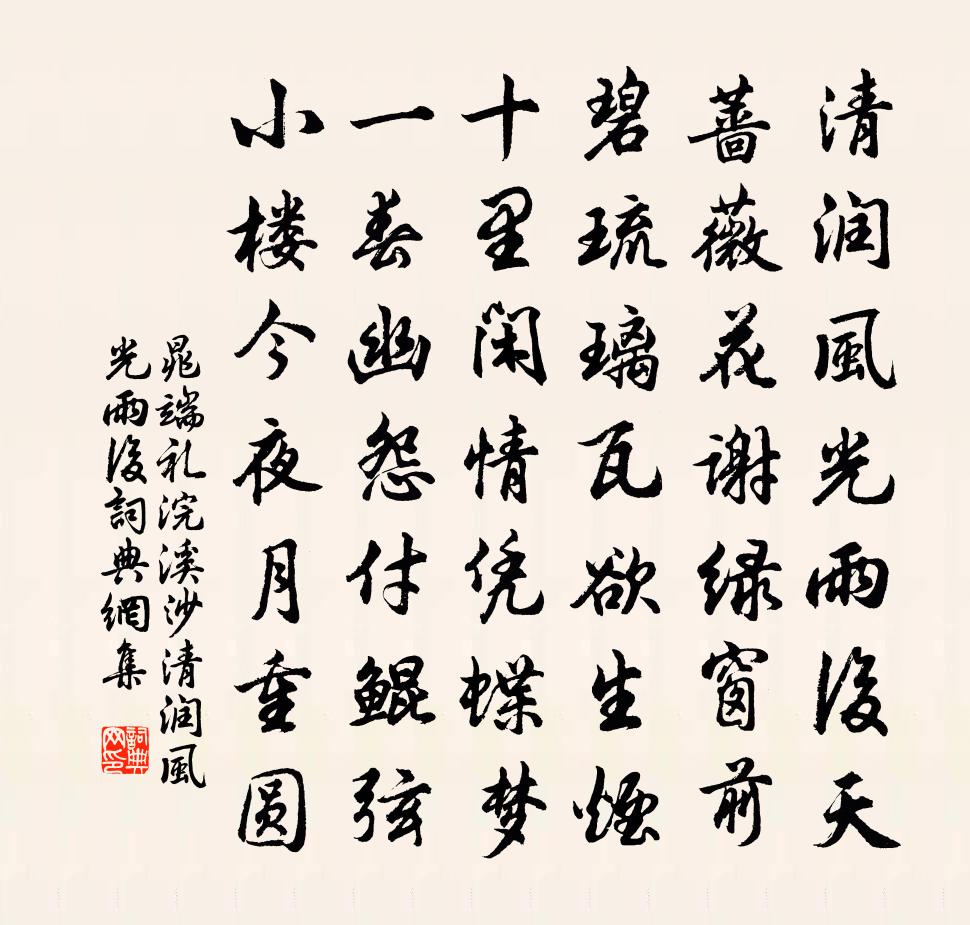 清润風光雨後天
蔷薇花谢绿窗前
碧琉璃瓦欲生煙
十里闲情凭蝶梦
一春幽怨付鲲弦
小楼今夜月重圆
晁端礼浣溪沙清润風
光雨後詞典網集
詞典网印